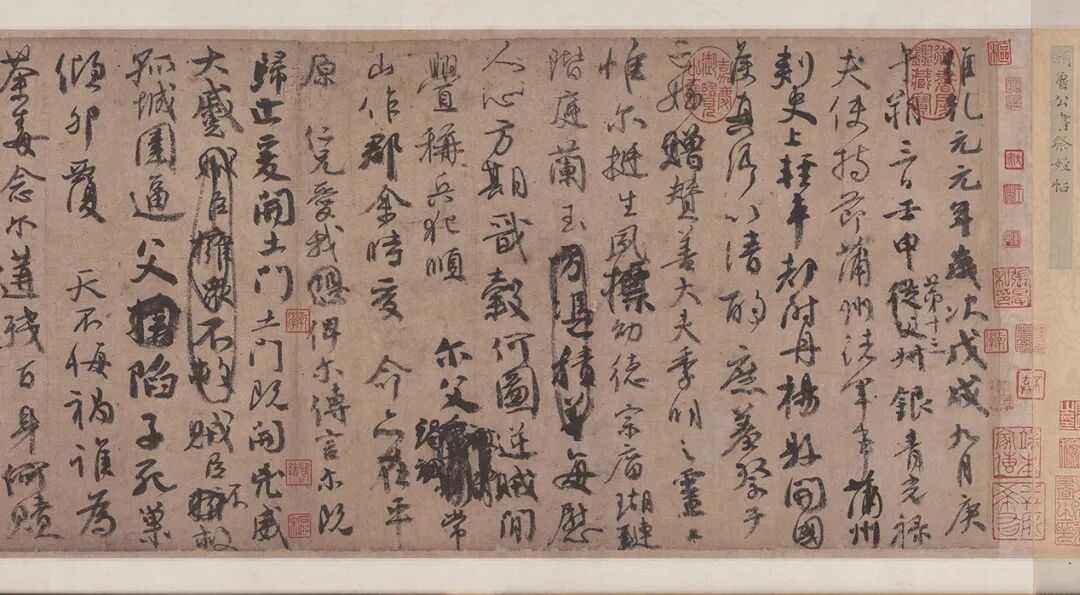 顏魯公書祭姪帖
維乾元元年歲次戊戌九月庚
午朔三日壬申第十三從父叔銀青光祿
夫使持節蒲州諸軍事蒲州
刺史上輕車都尉丹楊縣開國
侯真卿以清酌庶羞祭于
亡姪贈贊善大夫季明之靈曰
惟爾挺生夙標幼德宗廟瑚璉
階庭蘭玉方憑積善每慰
人心方期戩穀何圖逆賊閒
釁稱兵犯順爾父竭誠常
山作郡余時受命亦在平
原仁兄愛我恐俾爾傳言爾既
歸止爰開土門土門既開凶威
大蹙賊臣擁眾不救賊臣不救
孤城圍逼父陷子死巢
傾卵覆天不悔禍誰為
荼毒念爾遘殘百身何贖